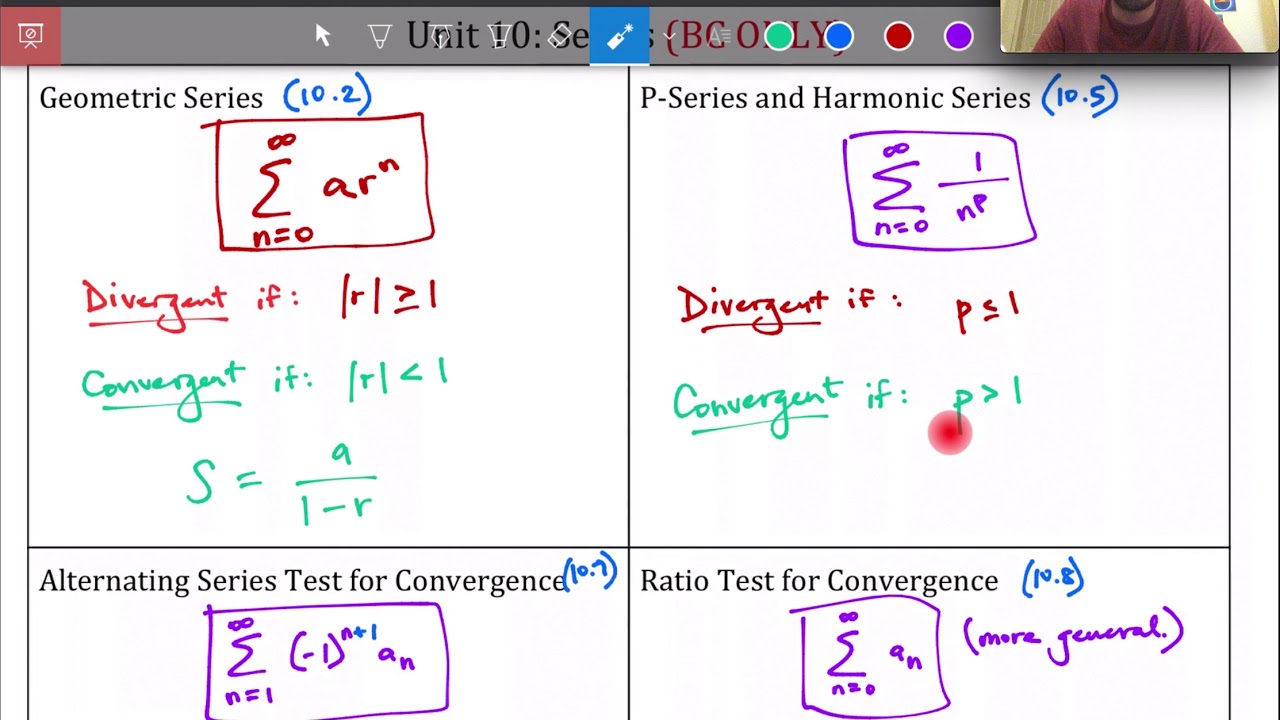 Unit 10: Se s (BC ONLY)
Geometric Series (10.2)
∞
∑ arⁿ
n=0
Divergent if: |r| ≥ 1
Convergent if: |r| < 1
S = a
1-r
P-Series and Harmonic Series (10.5)
∞
∑ 1
nᵖ
n=0
Divergent if: p ≤ 1
Convergent if: p > 1
Alternating Series Test for Convergence (10.7)
∞
∑ (-1)ⁿ⁺¹ aₙ
n=1
Ratio Test for Convergence (10.8)
∞
∑ aₙ (more general.)
n=0